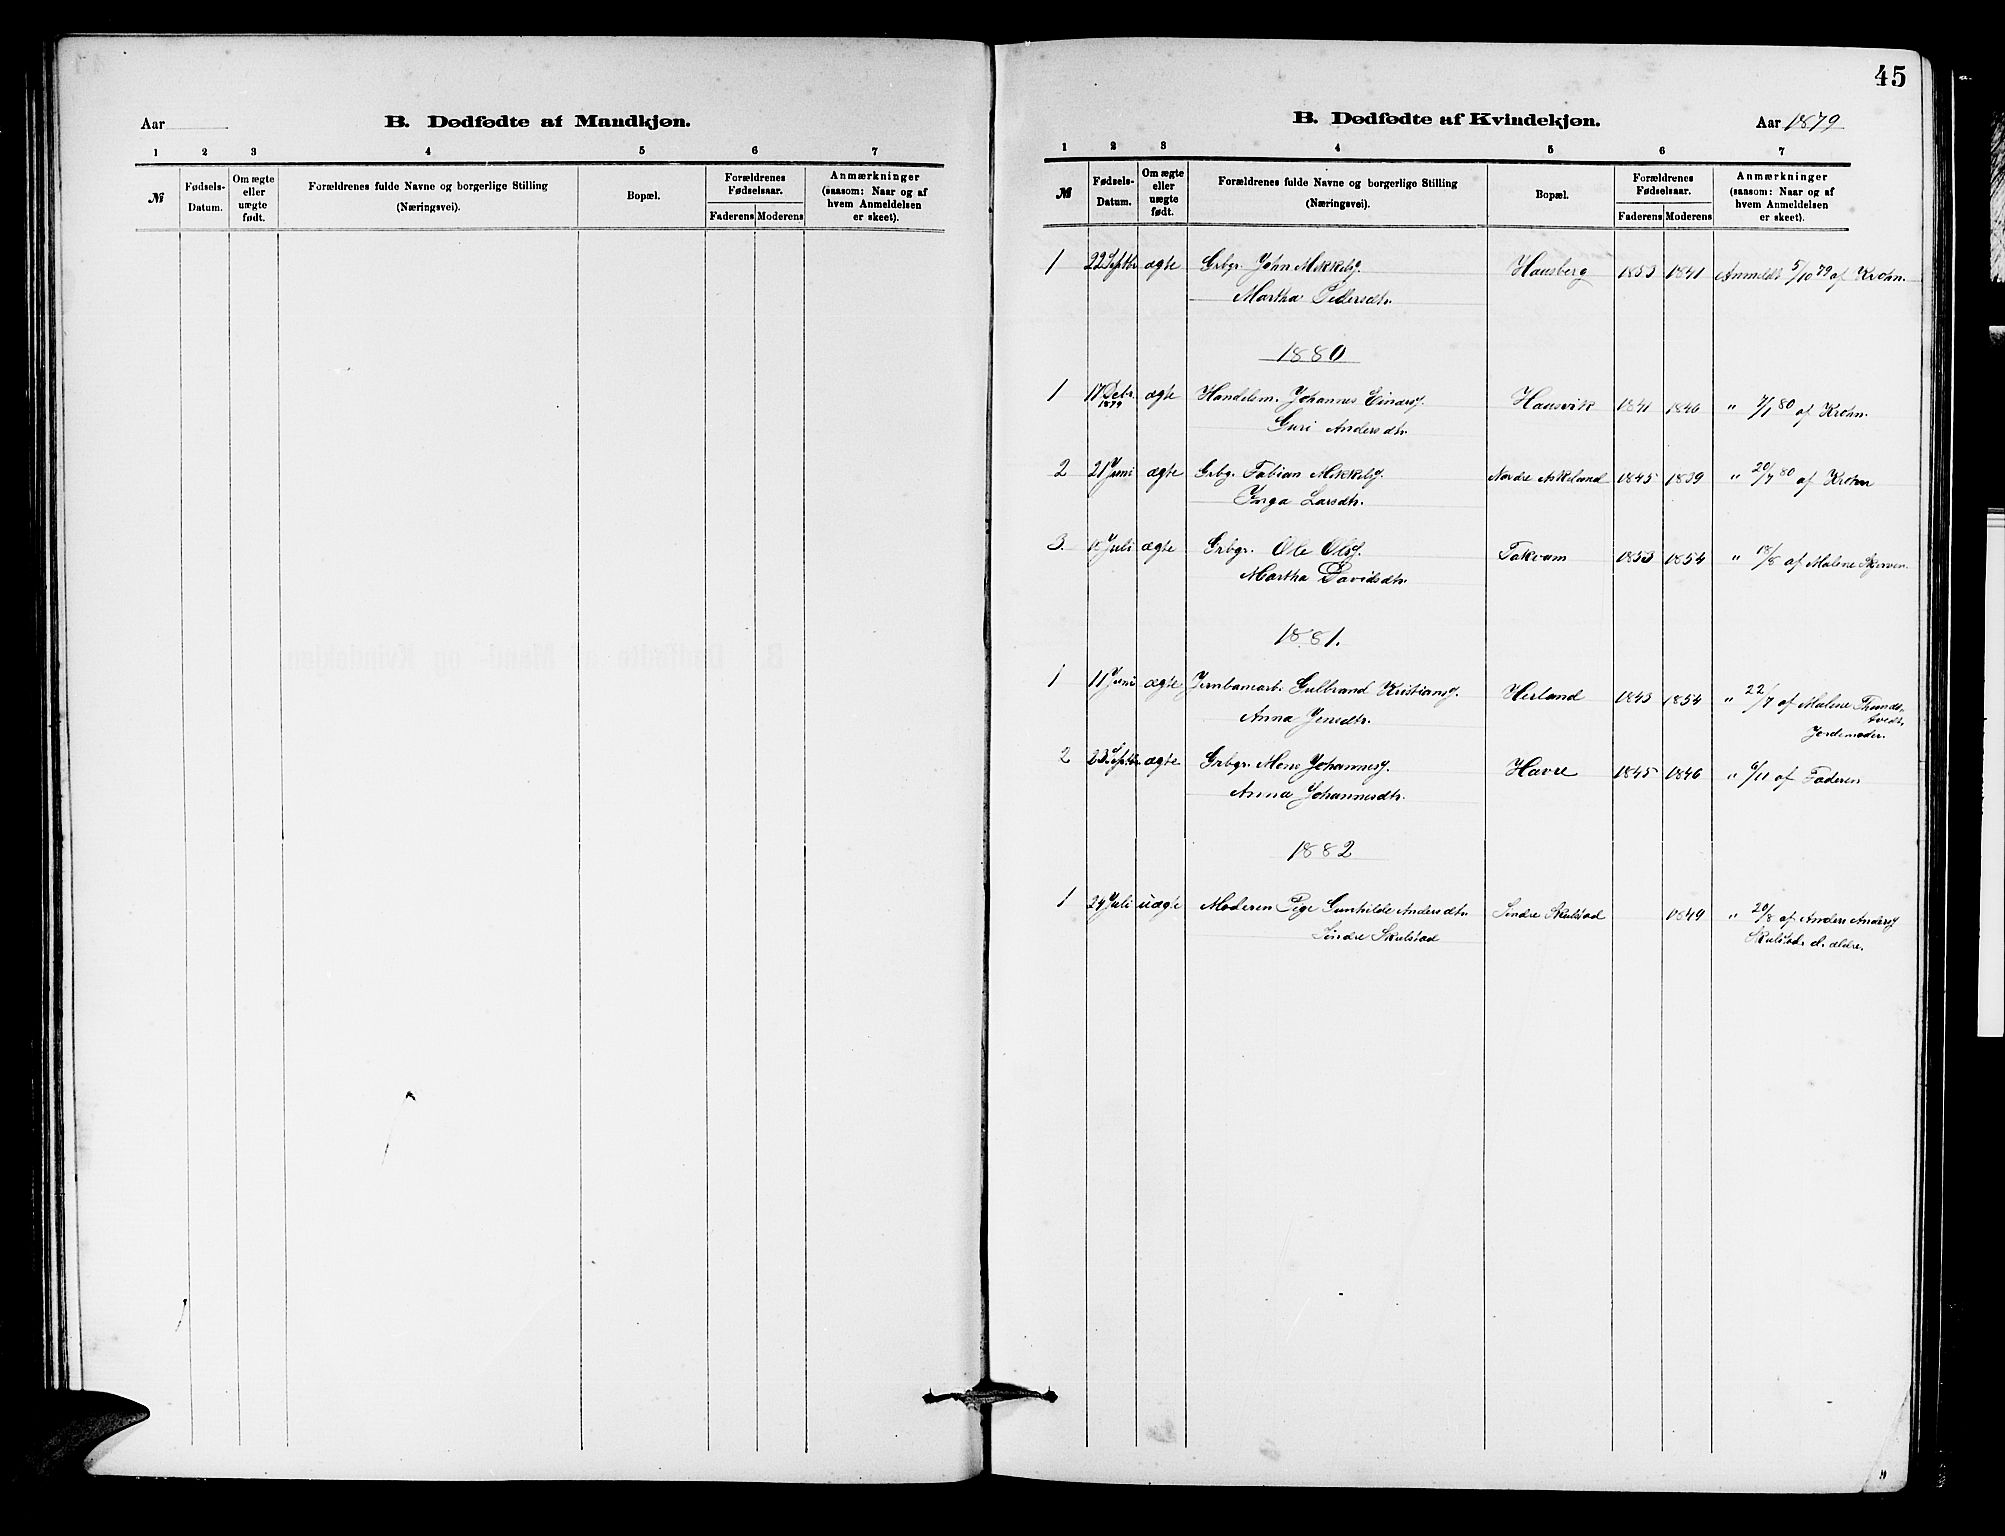 Aar
B. Dødfødte af Mandkjøn.
1 2 3 4 5 6 7
№ Fødsels-Datum. Om ægte eller uægte født. Forældrenes fulde Navne og borgerlige Stilling (Næringsvei). Bopæl. Forældrenes Fødselsaar. Faderens Moderens Anmærkninger (saasom: Naar og af hvem Anmeldelsen er skeet).
45
B. Dødfødte af Kvindekjøn.
Aar 1879
1 2 3 4 5 6 7
№ Fødsels-Datum. Om ægte eller uægte født. Forældrenes fulde Navne og borgerlige Stilling (Næringsvei). Bopæl. Forældrenes Fødselsaar. Faderens Moderens Anmærkninger (saasom: Naar og af hvem Anmeldelsen er skeet).
1 22 Septbr ægte Grbgr. John Mikkels. Hausberg 1853 1841 Anmeldt 5/10 79 af Krohn.
Martha Pedersdtr.
1880
1 17 Debr. 1879 ægte Handelsm. Johannes Einars. Hausvik 1841 1846 " 4/1 80 af Krohn.
Guri Andersdtr.
2 21 Juni ægte Grbgr. Fabian Mikkels. Nordre Askeland 1845 1839 " 20/7 80 af Krohn
Inga Larsdtr.
3. Juli ægte Grbgr. Ole Ols. Takvam 1853 1854 " 18/8 af Malene Skjerven.
Martha Davidsdtr.
1881.
1 11 Juni ægte Jernbanearb. Gulbrand Kristians. Herland 1843 1854 " 22/7 af Malene Thunds-
Anna Jensdtr. tvedt,
Jordemoder.
2 23 Septbr. ægte Grbgr. Mons Johannes. Havre 1845 1846 " 6/11 af Faderen
Anna Johannesdtr.
1882
1 24 Juli uægte Moderen Pige Gunhilde Andersdtr. Indre Skulstad 1849 " 20/8 af Anders Anders.
Indre Skulstad Skulstad d. ældre.